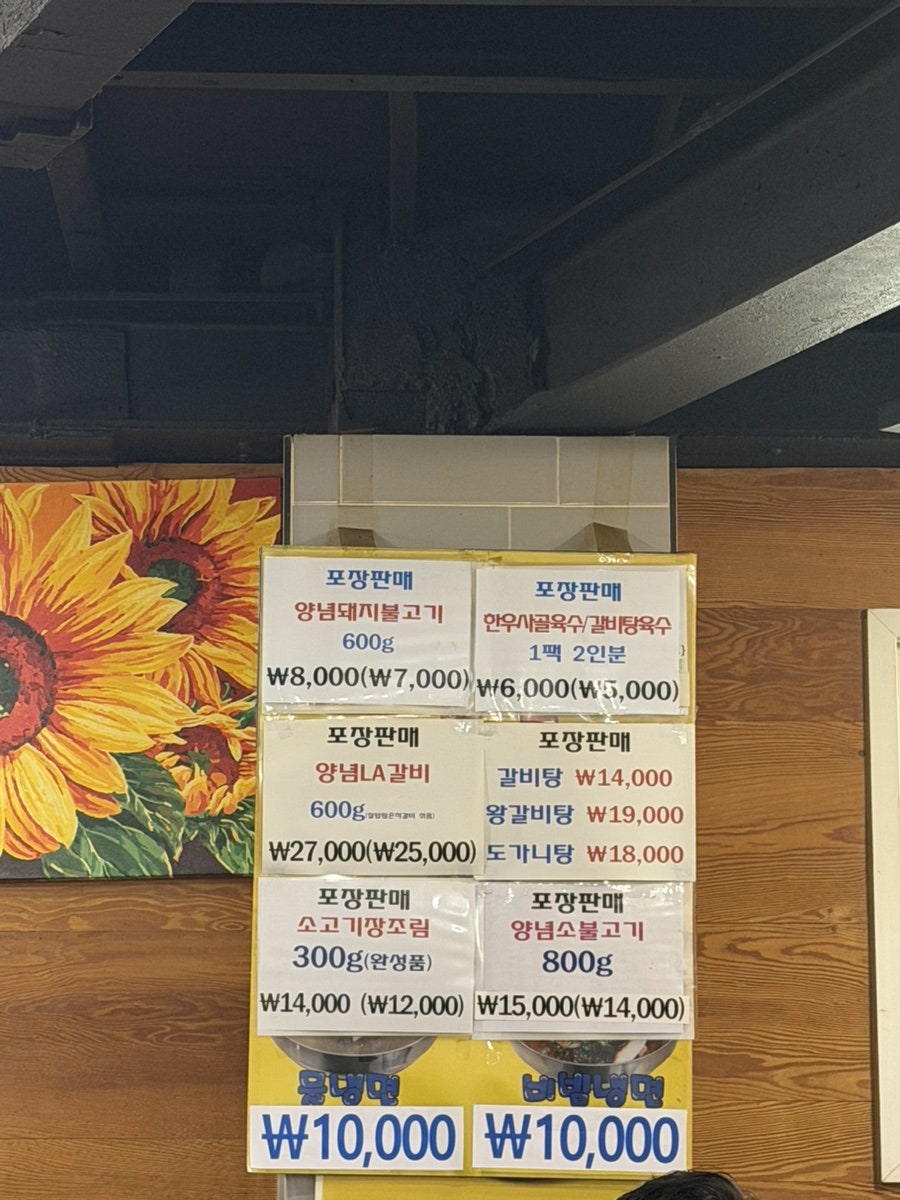 포장판매
양념돼지불고기
600g
₩8,000(₩7,000)
포장판매
한우사골육수/갈비탕육수
1팩 2인분
₩6,000(₩5,000)
포장판매
양념LA갈비
600g
₩27,000(₩25,000)
포장판매
갈비탕 ₩14,000
왕갈비탕 ₩19,000
도가니탕 ₩18,000
포장판매
소고기장조림
300g(완성품)
₩14,000 (₩12,000)
포장판매
양념소불고기
800g
₩15,000(₩14,000)
물냉면
₩10,000
비빔냉면
₩10,000